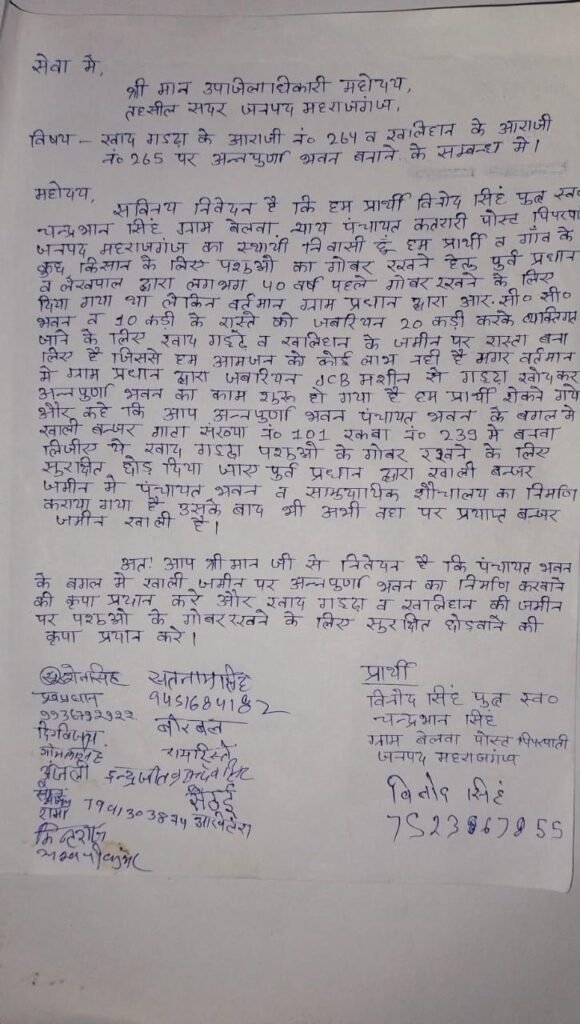 सेवा मे,
श्री मान उपाजिलाधिकारी महोदय,
तहसील सदर जनपद महराजगंज,
विषय - खाद गडढा के आराजी नं० 264 व खालिहान के आराजी
नं० 265 पर अन्नपुर्णा भवन बनाने के सम्बन्ध मे।
महोदय,
सविनय निवेदन है कि हम प्रार्थी विनोद सिंह पुत्र स्व०
चन्द्रभान सिंह ग्राम बेलवा, न्याय पंचायत कतरारी पोस्ट पिपरपा
जनपद महराजगंज का स्थायी निवासी हूं हम प्रार्थी व गाँव के
कुछ किसान के लिए पशुओ का गोबर रखने हेतु पुर्व प्रधान
व लेखपाल द्वारा लगभग 40 वर्ष पहले गोबर रखने के लिए
दिया गया था लेकिन वर्तमान ग्राम प्रधान द्वारा आर० सी० सी०
भवन व 10 कड़ी के रास्ते को जबरियन 20 कड़ी करके व्यक्तिगत
जाने के लिए खाद गडढे व खालिहान के जमीन पर रास्ता बना
लिए है जिससे हम आमजन को कोई लाभ नही है मगर वर्तमान
मे ग्राम प्रधान द्वारा जबरियन JCB मशीन से गडढा खोदकर
अन्नपुर्णा भवन का काम शुरू हो गया है हम प्रार्थी रोकने गये
और कहे कि आप अन्नपुर्णा भवन पंचायत भवन के बगल मे
खाली बन्जर गाटा संख्या नं० 101 रकबा नं० 239 मे बनवा
लिजीए ये खाद गडढा पशुओ के गोबर रखने के लिए
सुरक्षित छोड़ दिया जाए पुर्व प्रधान द्वारा खाली बन्जर
जमीन मे पंचायत भवन व सामुदायिक शौचालय का निर्माण
कराया गया है उसके बाद भी अभी वहा पर प्रयाप्त बन्जर
जमीन खाली है।
अतः आप श्री मान जी से निवेदन है कि पंचायत भवन
के बगल मे खाली जमीन पर अन्नपुर्णा भवन का निर्माण करवाने
की कृपा प्रयान करे और खाद गडढा व खालिहान की जमीन
पर पशुओ के गोबर रखने के लिए सुरक्षित छोडवाने की
कृपा प्रयान करे।
प्रार्थी
विनोद सिंह पुत्र स्व०
चन्द्रभान सिंह
ग्राम बेलवा पोस्ट पिपरपाती
जनपद महराजगंज
विनोद सिंह
सतनाम सिंह
9451684182
9936792922
बीरबल
दिग्विजय
रामहिस्ते
अंजली
शर्मा 7991303874